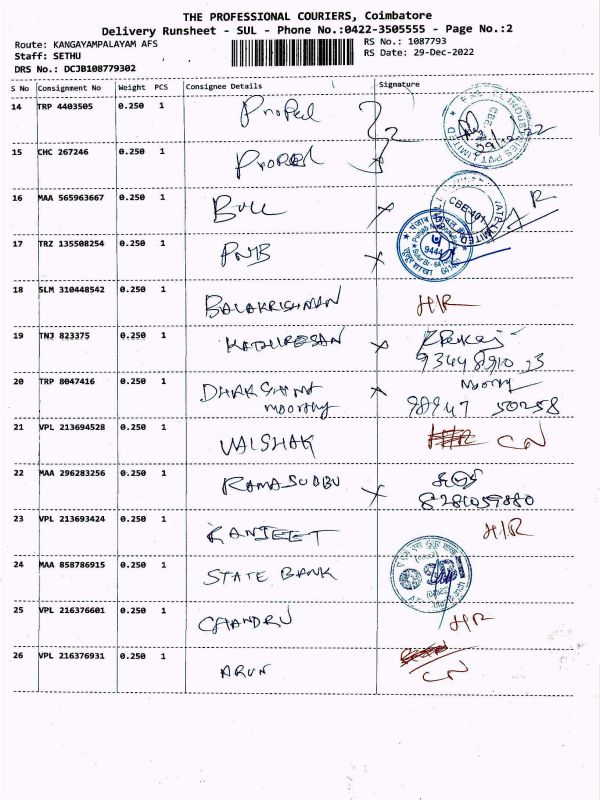 THE PROFESSIONAL COURIERS, Coimbatore
Delivery Runsheet - SUL - Phone No.:0422-3505555 - Page No.:2
Route: KANGAYAMPALAYAM AFS
RS No.: 1087793
Staff: SETHU
RS Date: 29-Dec-2022
DRS No.: DCJB108779302
S No Consignment No Weight PCS Consignee Details Signature
14 TRP 4403505 0.250 1 Propel
15 CHC 267246 0.250 1 Propel
16 MAA 565963667 0.250 1 Bull
17 TRZ 135508254 0.250 1 PNB
18 SLM 310448542 0.250 1 BALAKRISHNAN H/R
19 TNJ 823375 0.250 1 KATHIRESAN
20 TRP 8047416 0.250 1 DHAKSHINA moorthy
98947 50258
21 VPL 213694528 0.250 1 VAISHAK CN
22 MAA 296283256 0.250 1 RAMASUDBU
8281059880
23 VPL 213693424 0.250 1 RANJEET H/R
24 MAA 858786915 0.250 1 STATE BANK SBI
25 VPL 216376601 0.250 1 CHANDRU H/R
26 VPL 216376931 0.250 1 ARUN CN